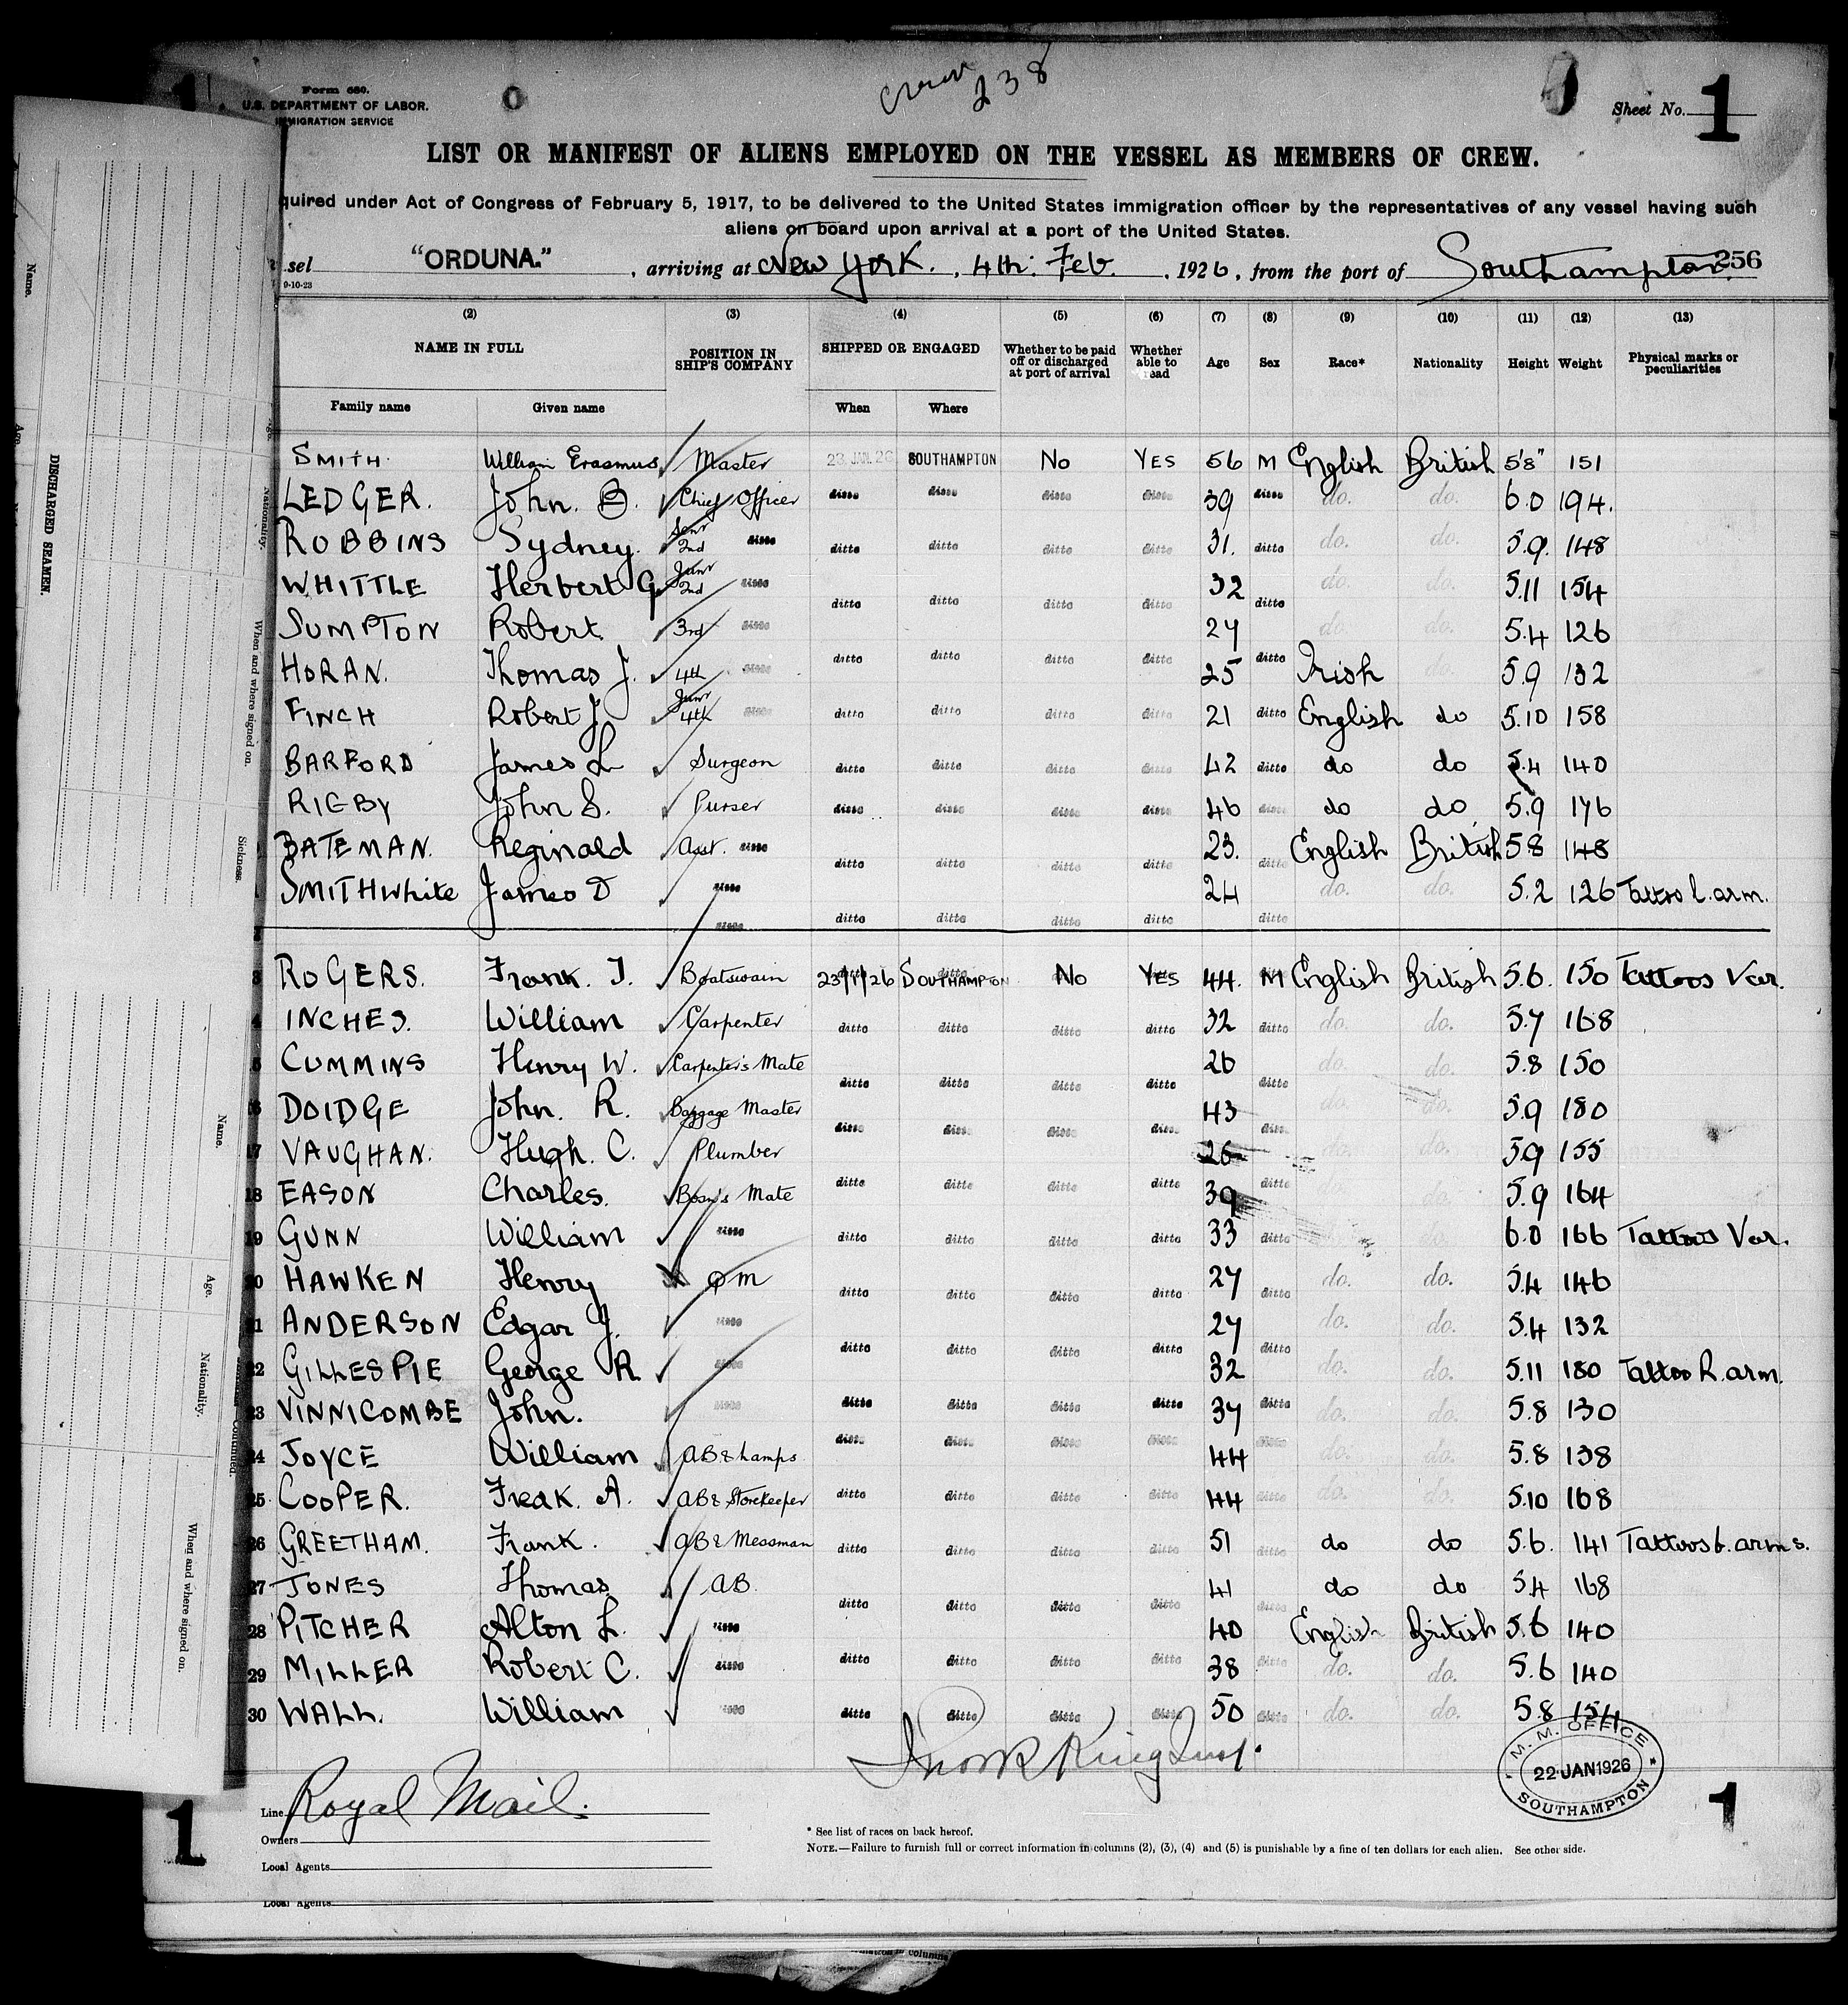 Crew 238
Form 680.
U.S. DEPARTMENT OF LABOR.
IMMIGRATION SERVICE
Sheet No. 1
LIST OR MANIFEST OF ALIENS EMPLOYED ON THE VESSEL AS MEMBERS OF CREW.
quired under Act of Congress of February 5, 1917, to be delivered to the United States immigration officer by the representatives of any vessel having such
aliens on board upon arrival at a port of the United States.
sel "ORDUNA." , arriving at New York. , 4th. Feb. , 1926, from the port of Southampton. 256
9-10-23
(2) (3) (4) (5) (6) (7) (8) (9) (10) (11) (12) (13)
NAME IN FULL POSITION IN SHIP'S COMPANY SHIPPED OR ENGAGED Whether to be paid off or discharged at port of arrival Whether able to read Age Sex Race* Nationality Height Weight Physical marks or peculiarities
Family name Given name When Where
SMITH. William Erasmus Master 23 JAN. 26 SOUTHAMPTON No YES 56 M English British 5'8" 151
LEDGER. John. B. Chief Officer ditto ditto ditto ditto 39 ditto do. do. 6.0 194.
ROBBINS Sydney. Senr 2nd ditto ditto ditto ditto ditto 31. ditto do. do. 5.9. 148
WHITTLE Herbert G. Junr 2nd ditto ditto ditto ditto ditto 32 ditto do. do. 5.11 154
SUMPTON Robert 3rd ditto 27 do. do. 5.4 126
HORAN. Thomas J. 4th ditto ditto ditto ditto ditto 25 ditto Irish do. 5.9 132
FINCH Robert J. Junr 4th ditto ditto ditto ditto ditto 21 ditto English do 5.10 158
BARFORD James L Surgeon ditto ditto ditto ditto 42 ditto do do 5.4 140
RIGBY John S. Purser ditto ditto ditto ditto 46 ditto do do 5.9 176
BATEMAN. Reginald Asst. ditto ditto ditto ditto ditto 23. ditto English British 5 8 148
SMITHWhite James D ditto 24 do. do. 5.2 126 Tattoo l. arm.
ditto ditto ditto ditto ditto ditto
3 ROGERS. Frank. T. Boatswain 23/1/26 SOUTHAMPTON No YES 44. M English British 5.6. 150 Tattoos Var.
4 INCHES. William Carpenter ditto ditto ditto ditto 32 ditto do. do. 5.7 168
5 CUMMINS Henry W. Carpenter's Mate ditto ditto ditto ditto 26 ditto do. do. 5.8 150
16 DOIDGE John. R. Baggage Master ditto ditto ditto ditto 43 ditto do. do. 5.9 180
17 VAUGHAN. Hugh. C. Plumber 26 do. do. 5.9 155
18 EASON Charles. Bosn's Mate ditto ditto ditto ditto 39 ditto 5.9 164
19 GUNN William ditto ditto ditto ditto ditto 33 ditto 6.0 166 Tattoos Var.
20 HAWKEN Henry QM ditto ditto ditto ditto 27 ditto do. do. 5.4 146
21 ANDERSON Edgar J. ditto 27 do. do. 5.4 132
22 GILLESPIE George R ditto ditto ditto ditto ditto 32 ditto do. do. 5.11 180 Tattoo R. arm.
23 VINNICOMBE John. ditto ditto ditto ditto ditto 37 ditto do. do. 5.8 130
24 JOYCE William AB & Lamps ditto ditto ditto ditto 44 ditto do. do. 5.8 138
25 COOPER. Fredk. A. AB & Storekeeper ditto ditto ditto ditto 44 ditto do. do. 5.10 168
26 GREETHAM. Frank. AB & Messman ditto ditto ditto ditto 51 ditto do do 5.6. 141 Tattoos b. arms.
27 JONES Thomas AB. ditto ditto ditto ditto 41 ditto do do 5.4 168
28 PITCHER Alton L. ditto 40 English British 5.6 140
29 MILLER Robert C. ditto ditto ditto ditto ditto 38 ditto do. do. 5.6 140
30 WALL. William ditto ditto ditto ditto ditto 50 ditto do. do. 5.8 154
M. M. OFFICE
22 JAN 1926
SOUTHAMPTON
Line Royal Mail.
Owners
Local Agents
Local Agents
1 1
* See list of races on back hereof.
NOTE.—Failure to furnish full or correct information in columns (2), (3), (4) and (5) is punishable by a fine of ten dollars for each alien. See other side.
DISCHARGED SEAMEN.
Name.
Age.
Nationality.
When and where signed on.
Sickness.
Name.
Age.
Nationality.
When and where signed on.
Continued.